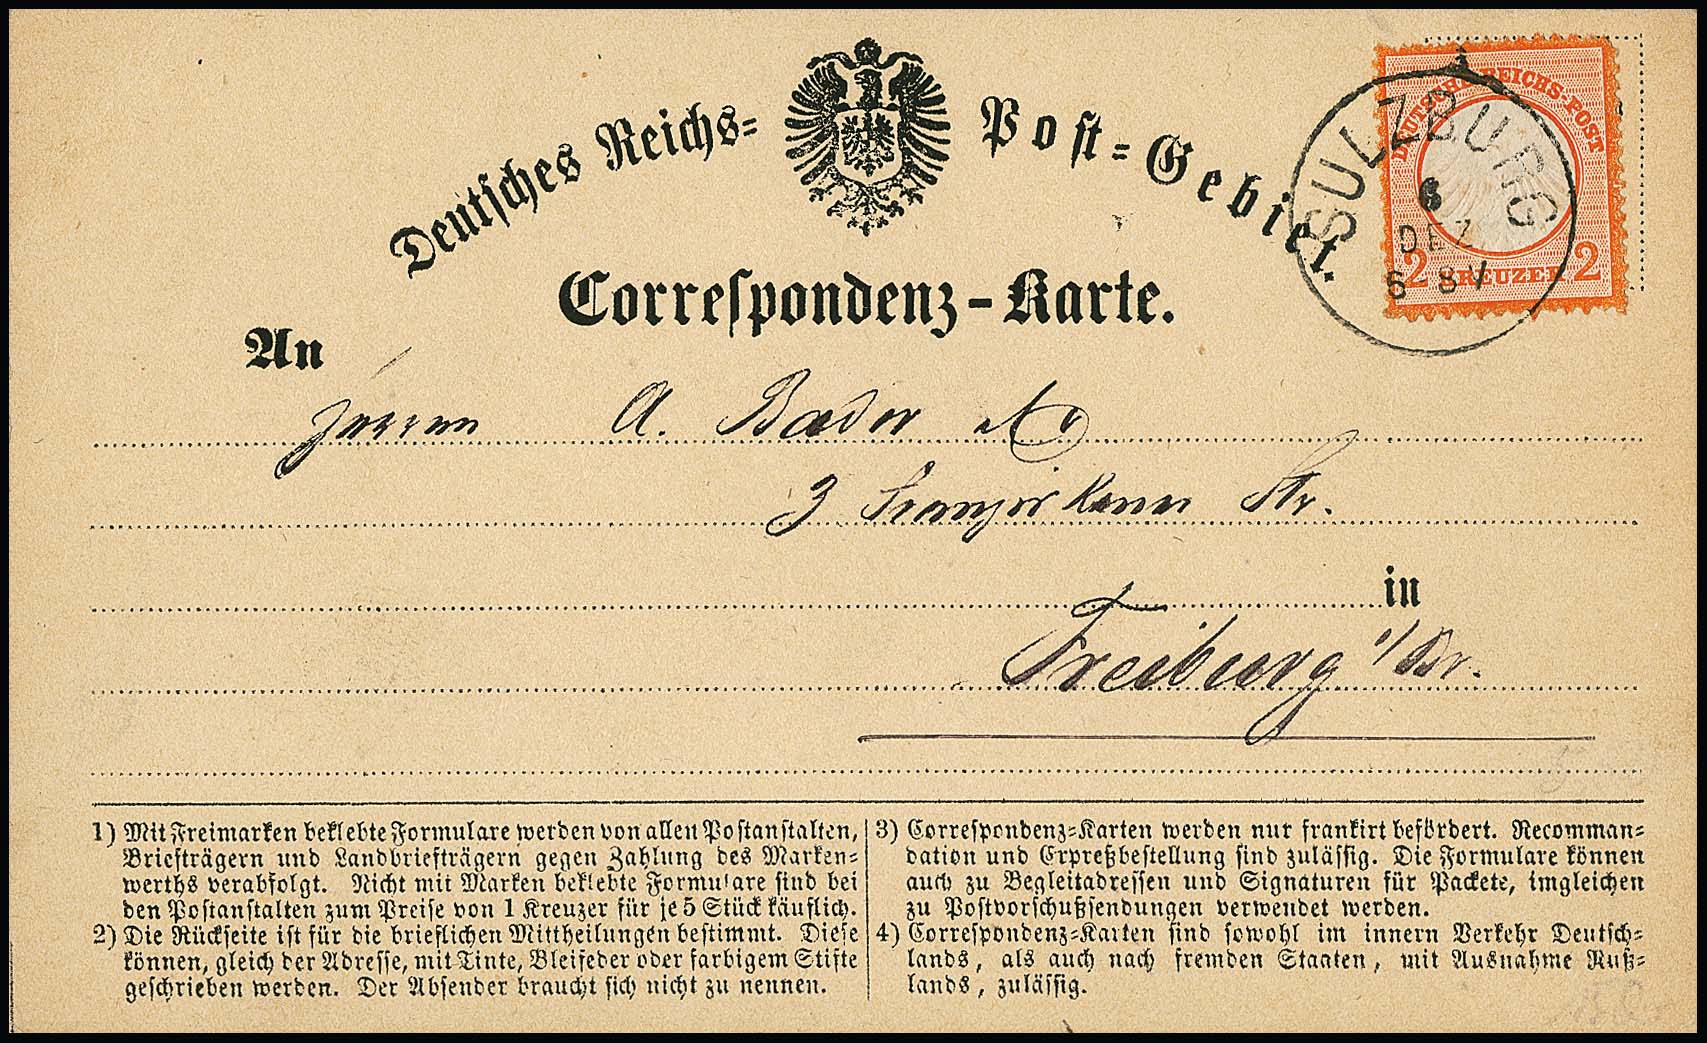 Deutsches Reichs-Post-Gebiet.
DEUTSCHE REICHS-POST
2 KREUZER 2
SULZBURG
6
DEZ
6-8V
Correspondenz-Karte.
An
Herrn A. Bader
3 Franziskaner Str.
in
Freiburg i/Br.
1) Mit Freimarken beklebte Formulare werden von allen Postanstalten,
Briefträgern und Landbriefträgern gegen Zahlung des Marken-
werths verabfolgt. Nicht mit Marken beklebte Formulare sind bei
den Postanstalten zum Preise von 1 Kreuzer für je 5 Stück käuflich.
2) Die Rückseite ist für die brieflichen Mittheilungen bestimmt. Diese
können, gleich der Adresse, mit Tinte, Bleifeder oder farbigem Stifte
geschrieben werden. Der Absender braucht sich nicht zu nennen.
3) Correspondenz-Karten werden nur frankirt befördert. Recomman-
dation und Expreßbestellung sind zulässig. Die Formulare können
auch zu Begleitadressen und Signaturen für Packete, imgleichen
zu Postvorschußsendungen verwendet werden.
4) Correspondenz-Karten sind sowohl im innern Verkehr Deutsch-
lands, als auch nach fremden Staaten, mit Ausnahme Ruß-
lands, zulässig.